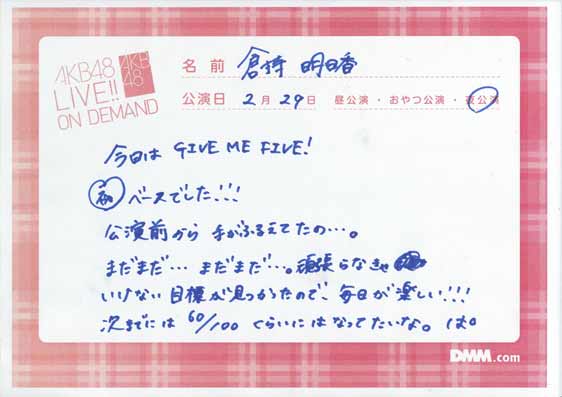 AKB48
LIVE!!
ON DEMAND
AKB
48
名前 倉持 明日香
公演日 2月29日 昼公演・おやつ公演・夜公演
今日は GIVE ME FIVE!
初 ベースでした!!!
公演前から 手がふるえてたの…。
まだまだ… まだまだ…。頑張らなきゃ
いけない 目標が見つかったので、毎日が楽しい!!!
次までには 60/100 くらいにはなってたいな。
DMM.com